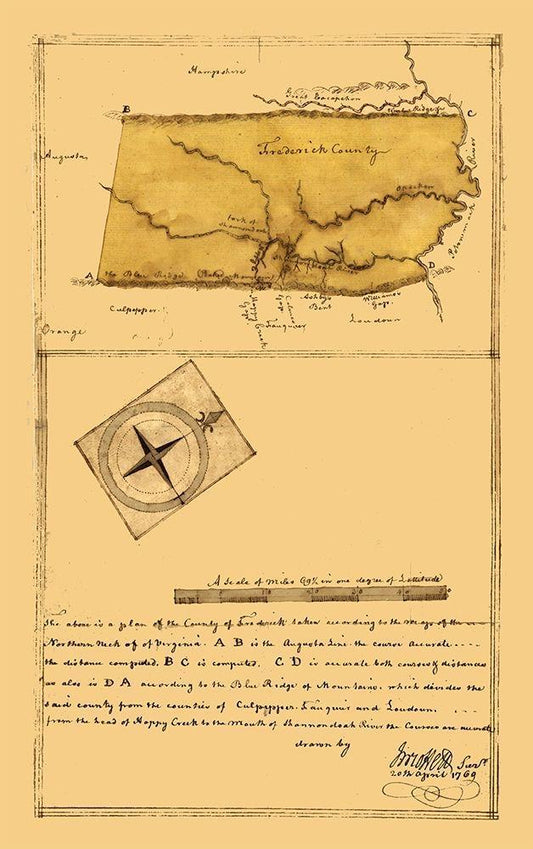 Hampshire
Great Cacapehon
B
C
Augusta
Frederick County
River
Opeckon
Potowmack
fork of
Shannondoah
A
the Blue Ridge
D
Culpepper
Ashbys
Bent
Williams
Gap
Fauquier
Loudoun
Orange
A Scale of Miles 69½ in one degree of Lattitude
The above is a plan of the County of Frederick taken according to the maps of the
Northern Neck of of Virginia. A B is the Augusta Line the course accurate
the distance computed. B C is computed. C D is accurate both courses & distances
as also is D A according to the Blue Ridge of Mountains. which divides the
said county from the counties of Culpepper, Fauquir and Loudoun.
from the head of Happy Creek to the Mouth of Shannondoah River the Courses are accurate
drawn by
Survr.
20th April 1769